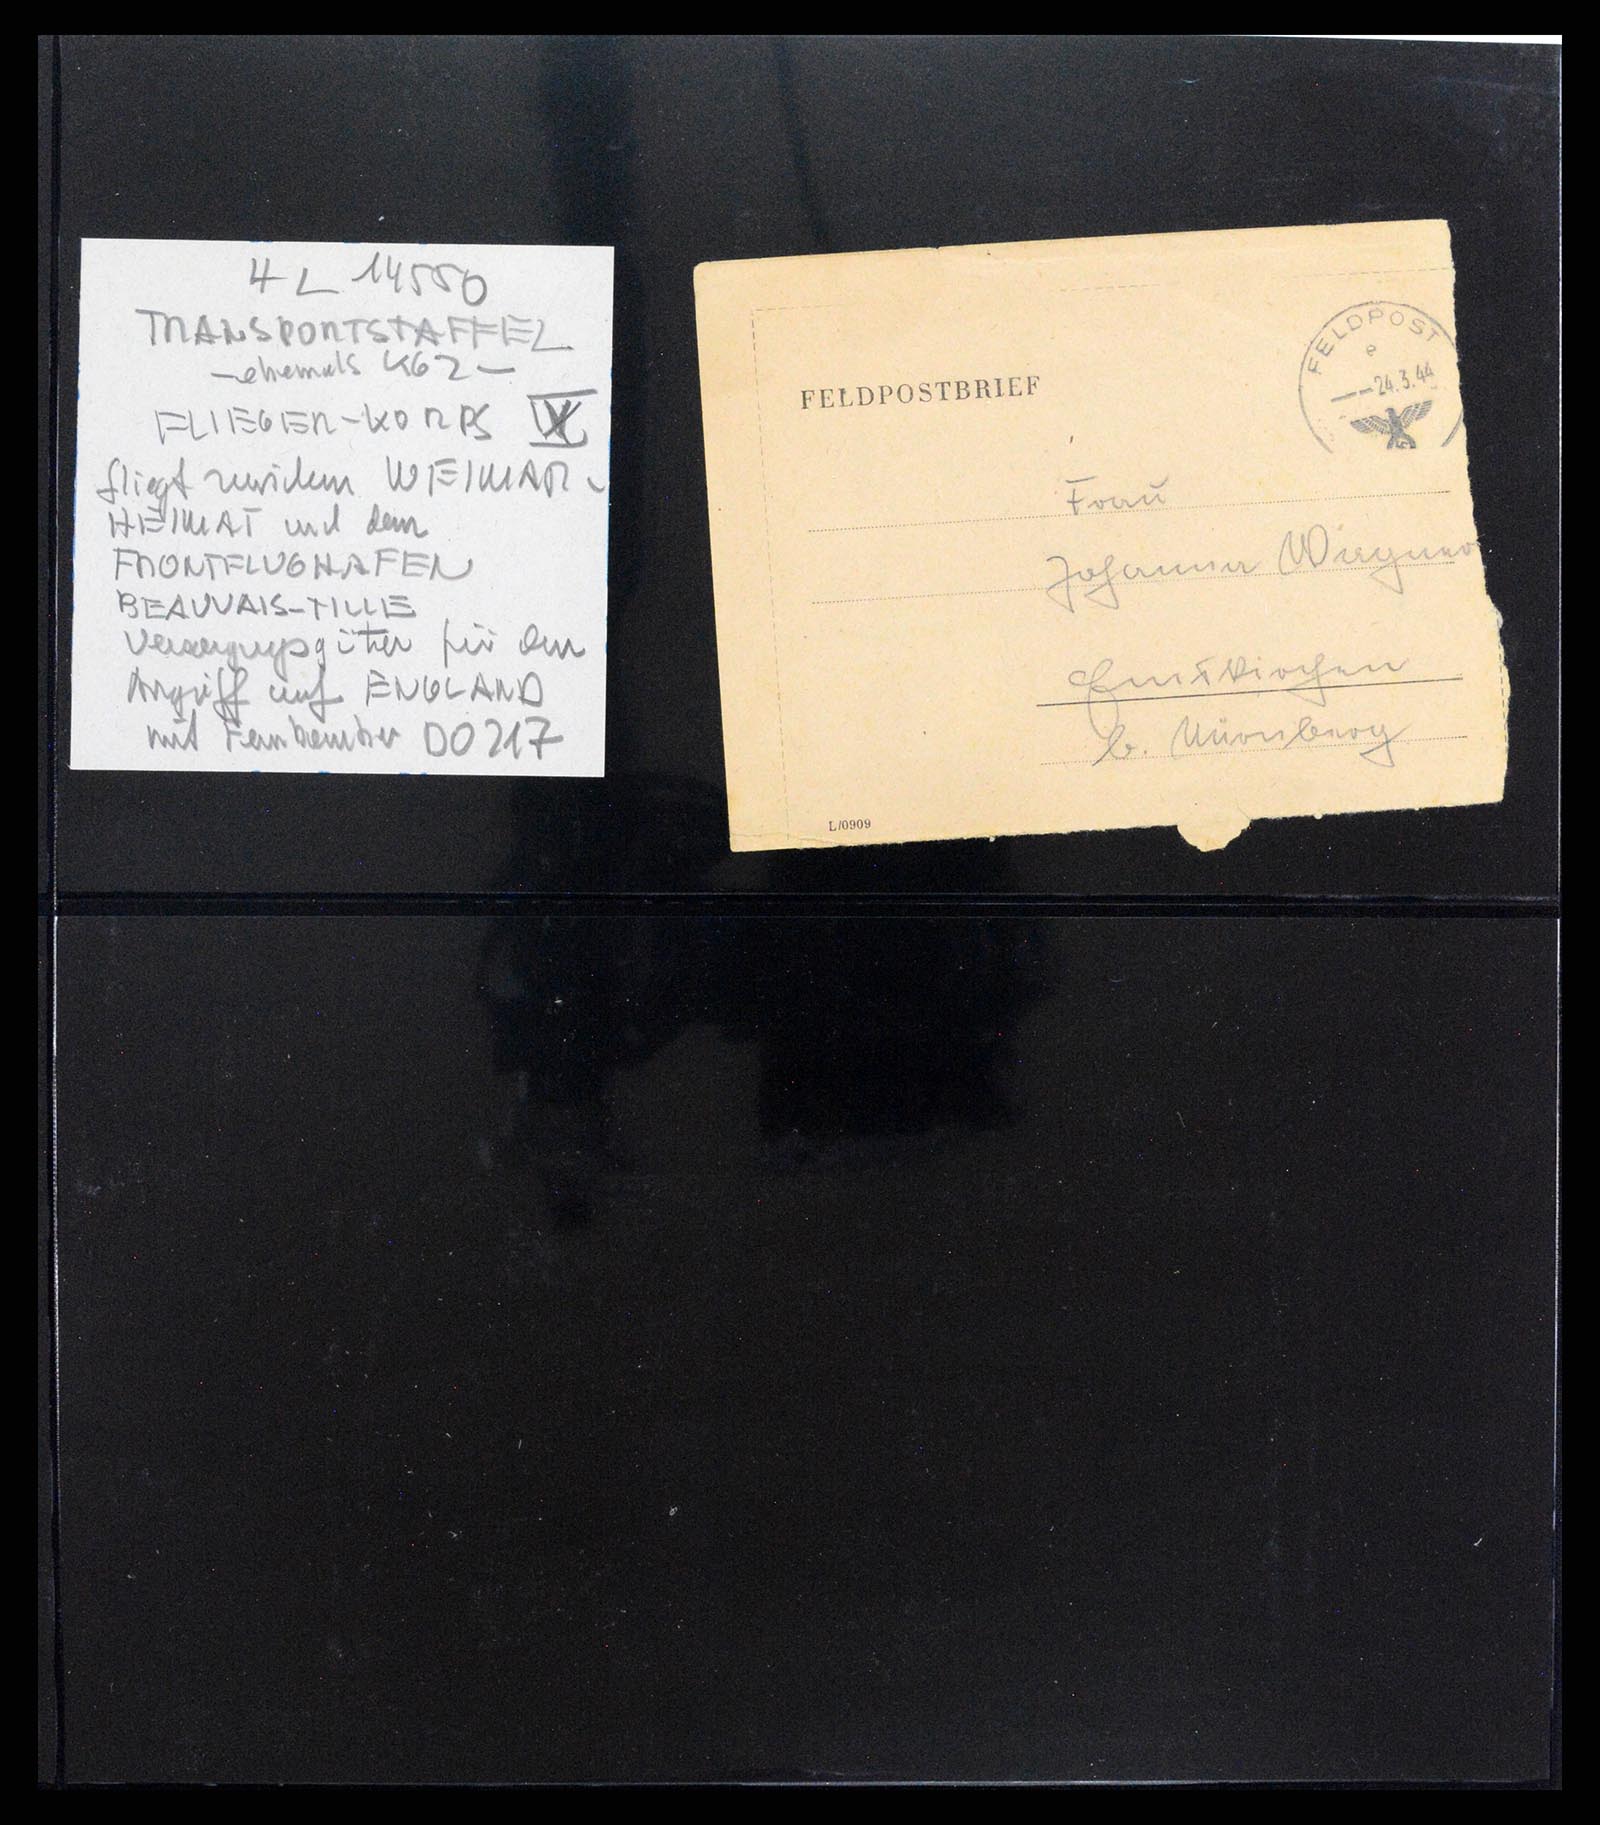 4 L 14550
TRANSPORTSTAFFEL
- ehemals KG 2 -
FLIEGER-KORPS
fliegt zwischen WEIMAR-
HEIMAT und dem
FRONTFLUGHAFEN
BEAUVAIS-TILLE
Versorgungsgüter für den
Angriff auf ENGLAND
mit Fernbomber DO 217
FELDPOST
e
--24.3.44
FELDPOSTBRIEF
Frau
Johanna Wagner
Emskirchen
b. Nürnberg
L/0909